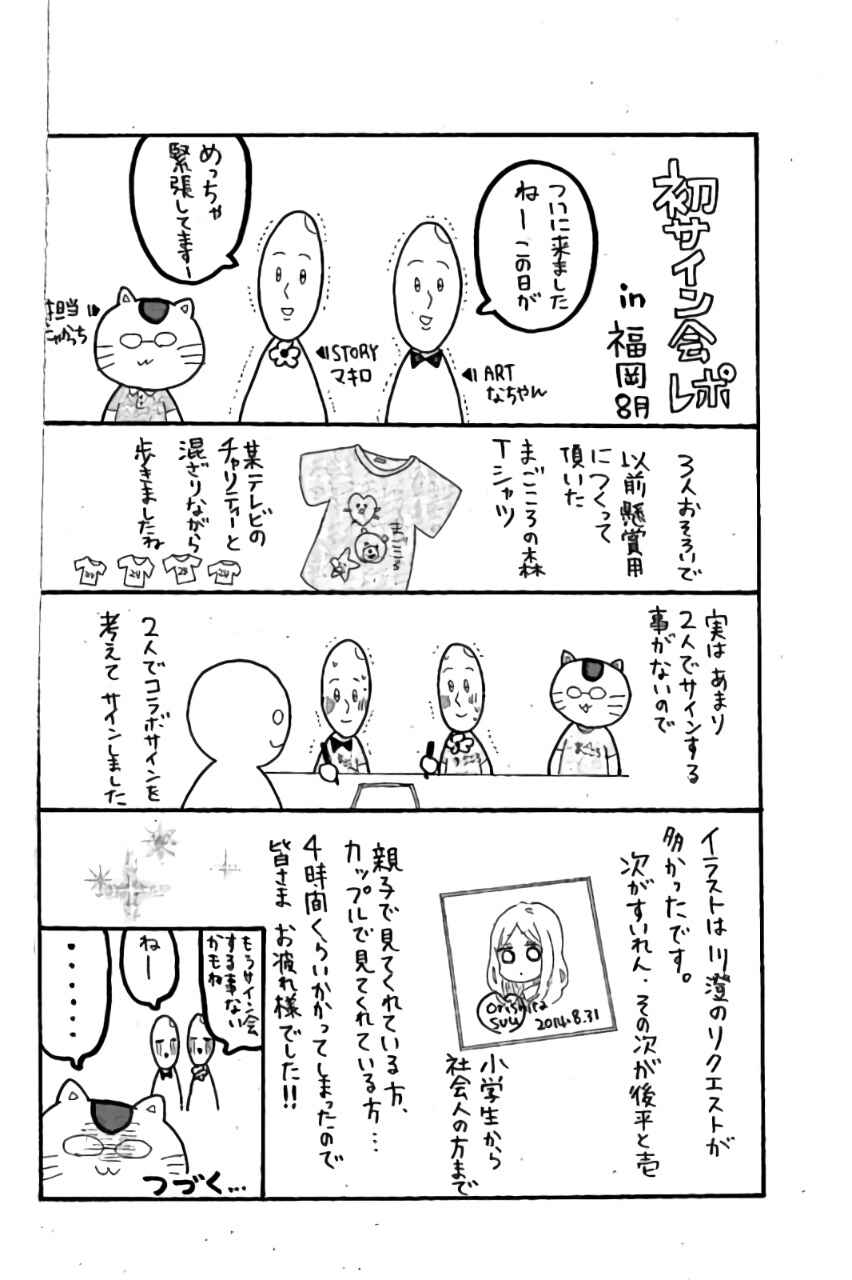 初サイン会レポ
in 福岡
8月
ついに来ました
ねー この日が
めっちゃ
緊張してますー
ART
なちやん
STORY
マキロ
担当
にゃかっち
3人おそろいで
以前懸賞用
につくって
頂いた
まごころの森
Tシャツ
まごころ
某テレビの
チャリティーと
混ざりながら
歩きましたね
24
28
24
実は あまり
2人でサインする
事がないので
まごころ
2人でコラボサインを
考えて サインしました
イラストは川澄のリクエストが
多かったです。
次がすいれん・その次が後平と壱
Orishira
Suu
2014.8.31
小学生から
社会人の方まで
親子で見てくれている方、
カップルで見てくれている方…
4時間くらいかかってしまったので
皆さま お疲れ様でした!!
もうサイン会
する事ない
かもね
ねー
・・・・・・
つづく…